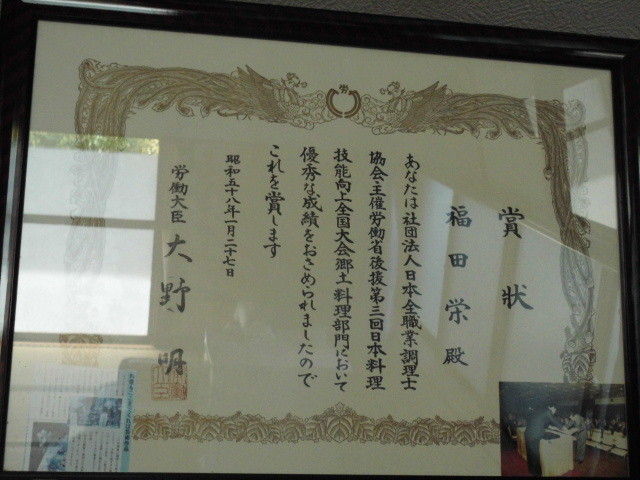 労
賞状
福田栄殿
あなたは社団法人日本全職業調理士
協会主催労働省後援第三回日本料理
技能向上全国大会郷土料理部門において
優秀な成績をおさめられましたので
これを賞します
昭和五十八年一月二十七日
労働大臣 大野明